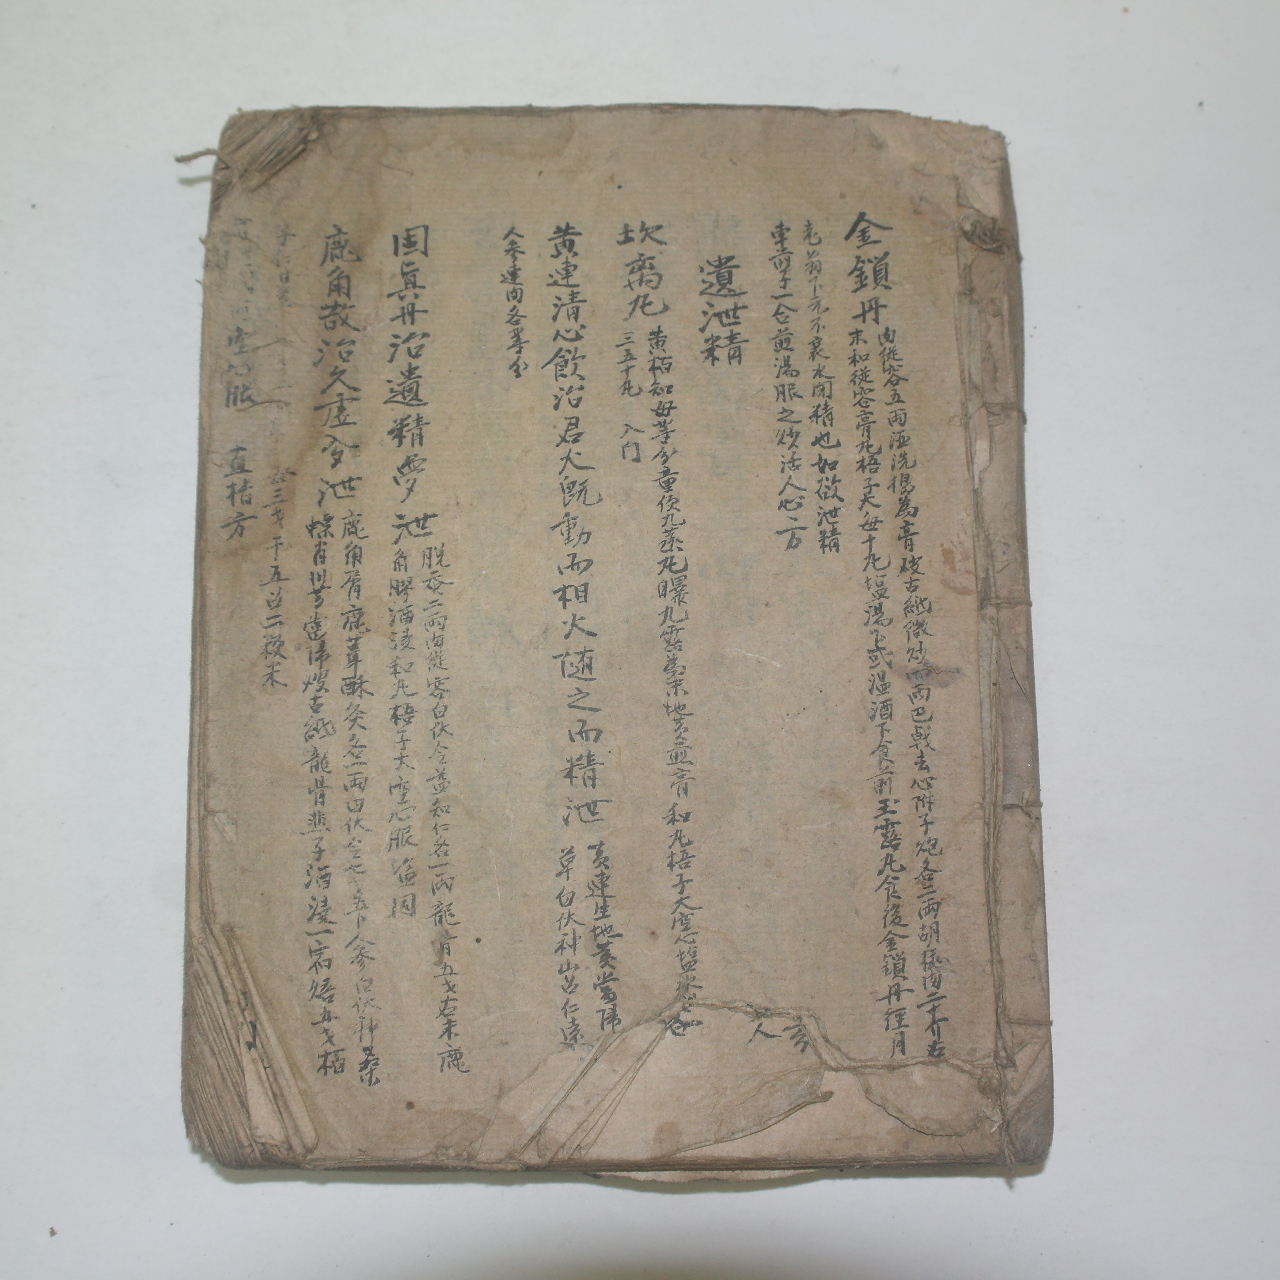 金鎖丹
肉從容五兩酒洗搗為膏破古紙微炒四兩巴戟去心附子炮各二兩胡桃肉二十介右
末和從容膏丸梧子大每十丸塩湯下或温酒下食前玉露丸食後金鎖丹經月
老翁下元不衰永閉精也如欲泄精
車前子一合煎湯服之妙活人心方
遺泄精
坎离丸
黄栢知母等分童便九蒸九曝九露為末地黄煎膏和丸梧子大空心塩水
三五十丸 入门
黄連清心飲治君火既動而相火随之而精泄
黄連生地黄當歸
草白伏神山召仁遠
人參連肉各等分
固真丹治遺精夢泄
脱蚕二兩肉從容白伏令益知仁各一兩龍骨五戔右末鹿
角膠酒浸和丸梧子大空心服
鹿角散治久虚夢泄
鹿角屑鹿茸酥灸各一兩白伏令七戔五卜人參白伏神桑
螵肖川芎當歸破古紙龍骨韭子酒浸一宿焙各五戔栢
子仁甘草
三戔干五召二梅末
空心服 直指方